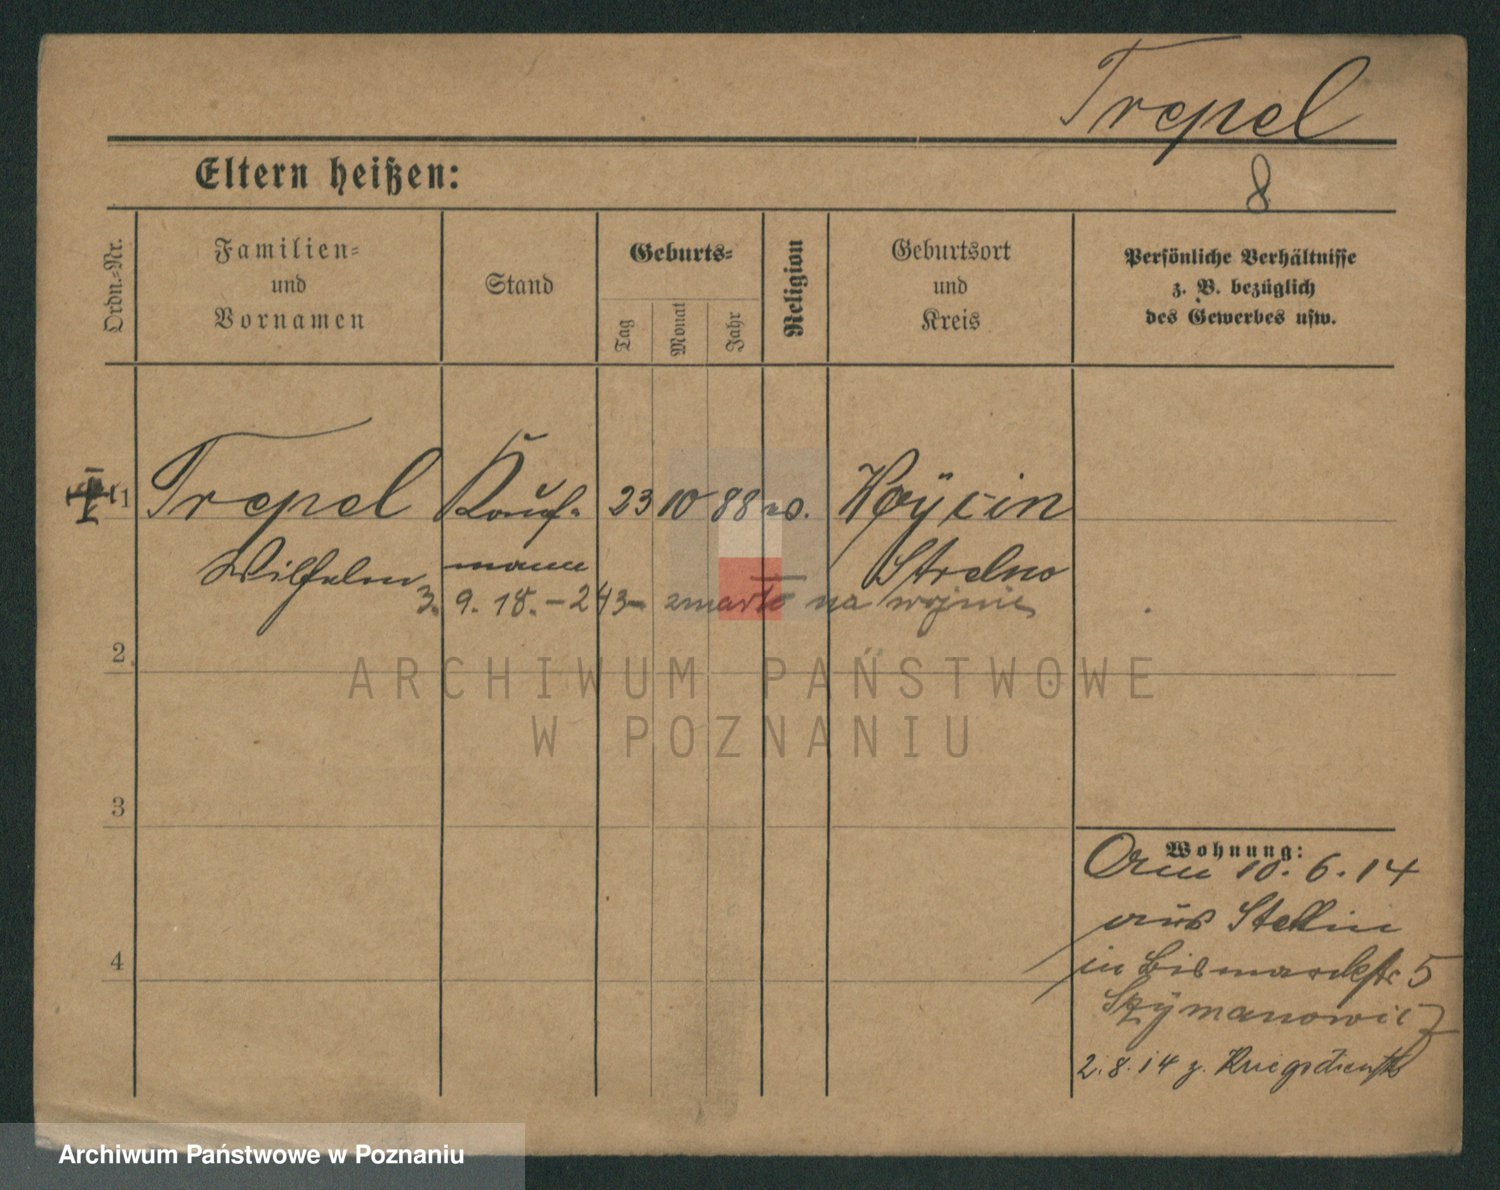 Trepel
Eltern heißen:
8
Ordn.-Nr.
Familien-
und
Vornamen
Stand
Geburts-
Tag
Monat
Jahr
Religion
Geburtsort
und
Kreis
Persönliche Verhältnisse
z. B. bezüglich
des Gewerbes usw.
1 Trepel Kauf- 23 10 88 Woÿcin
Wilhelm mann Strelno
3. 9. 18. - 243 - zmarł na wojnie
2
ARCHIWUM PAŃSTWOWE
W POZNANIU
3
Wohnung:
10. 6. 14
aus Stettin
4
in Bismarckstr 5
Szÿmanowicz
2. 8. 14 z. Kriegsdienst
Archiwum Państwowe w Poznaniu